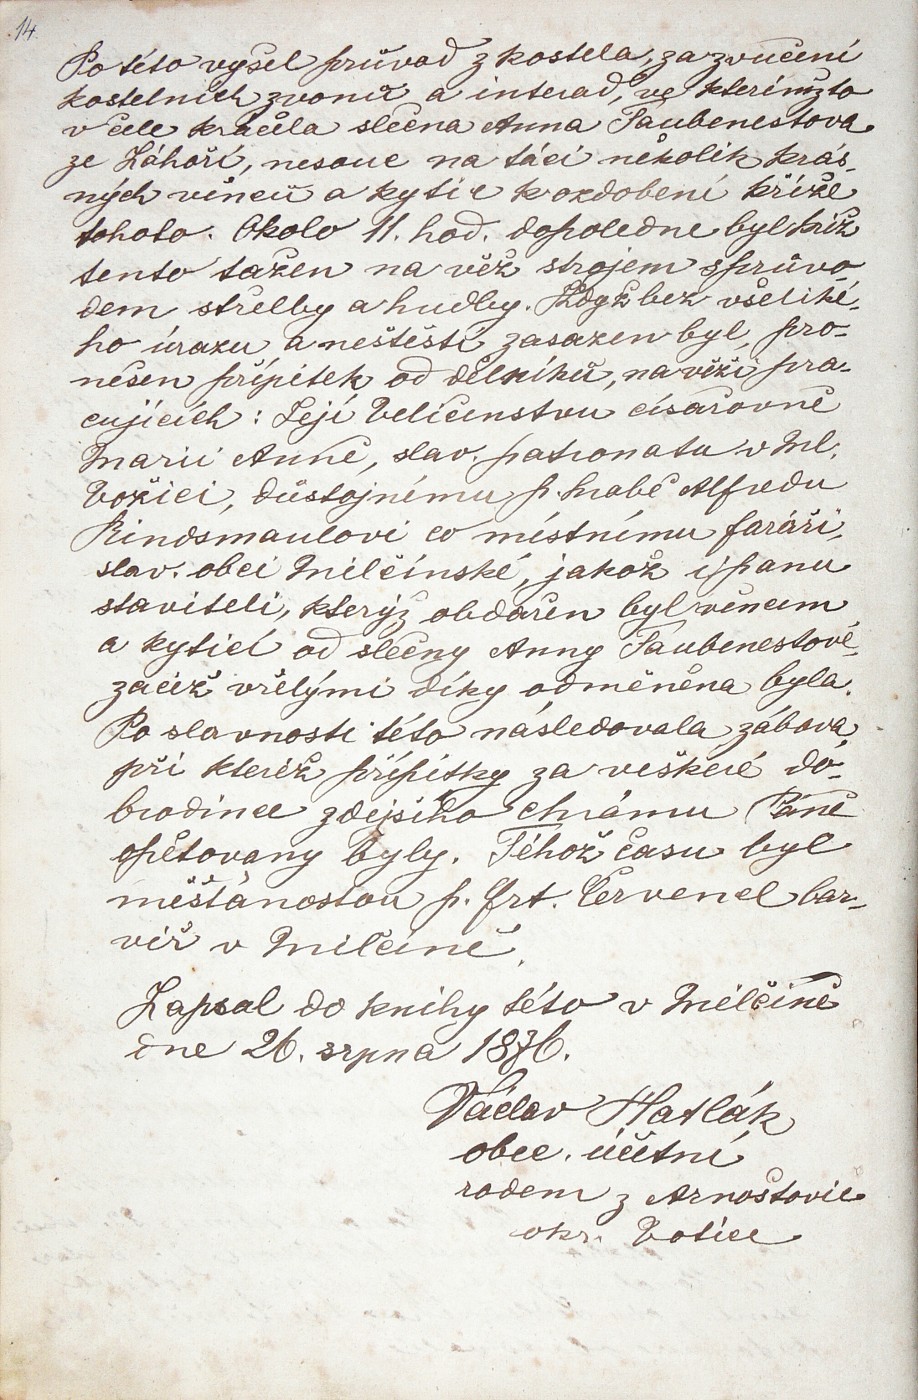 14.
Po této vyšel průvod z kostela, za zvučení
kostelních zvonů a intrad, ve kterémžto
v čele kráčela slečna Anna Taubenestova
ze Záhoří, nesouc na táci několik krás-
ných věnců a kytic k ozdobení kříže
tohoto. Okolo 11. hod. dopoledne byl kříž
tento tažen na věž strojem s průvo-
dem střelby a hudby. Když bez všeliké-
ho úrazu a neštěstí zasazen byl, pro-
nešen přípitek od dělníků, na věži pra-
cujících: Její Veličenstvu císařovně
Marii Anně, slav. patronatu v Ml.
Vožici, důstojnému p. hrabě Alfredu
Rindsmaulovi co místnímu faráři,
slav. obci Milčínské, jakož i panu
staviteli, kterýž obdařen byl věncem
a kyticí od slečny Anny Taubenestové,
začež vřelými díky odměněna byla.
Po slavnosti této následovala zábava
při kteréž přípitky za veškeré do-
brodince zdejšího chrámu Páně
opětovany byly. Téhož času byl
měšťanostou p. Frt. Červenel bar-
víř v Milčíně.
Zapsal do knihy této v Milčíně
dne 26. srpna 1876.
Václav Hatlák
obec. účetní
rodem z Arnoštovic
okr. Votice